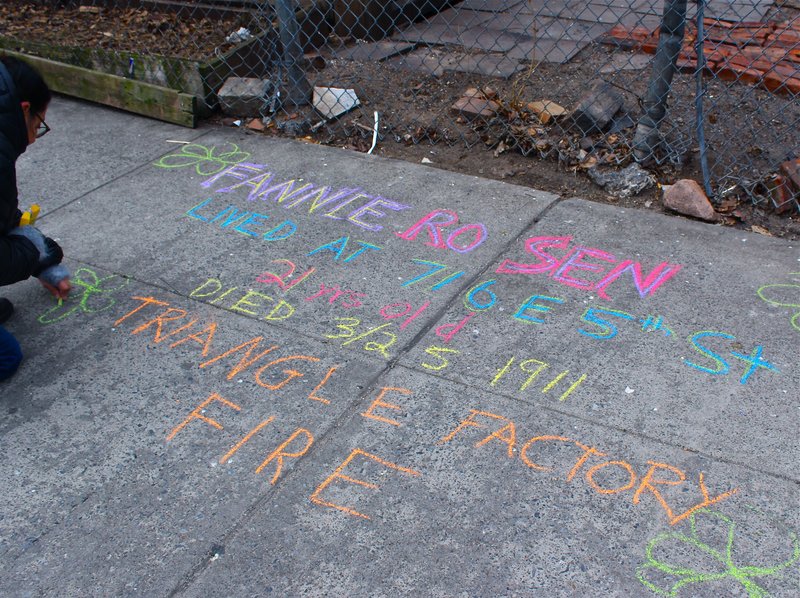 FANNIE ROSEN
LIVED AT 716 E 5th St
21 yrs old
DIED 3/25 1911
TRIANGLE FACTORY
FIRE